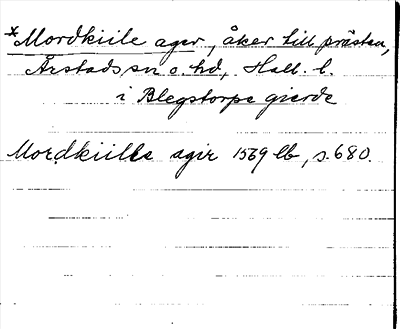 *Mordkiile ager, åker till prästen,
Årstads sn o. hd, Hall. l.
i Blegstorps gierde
Mordkiills agir 1569 lb, s. 680.